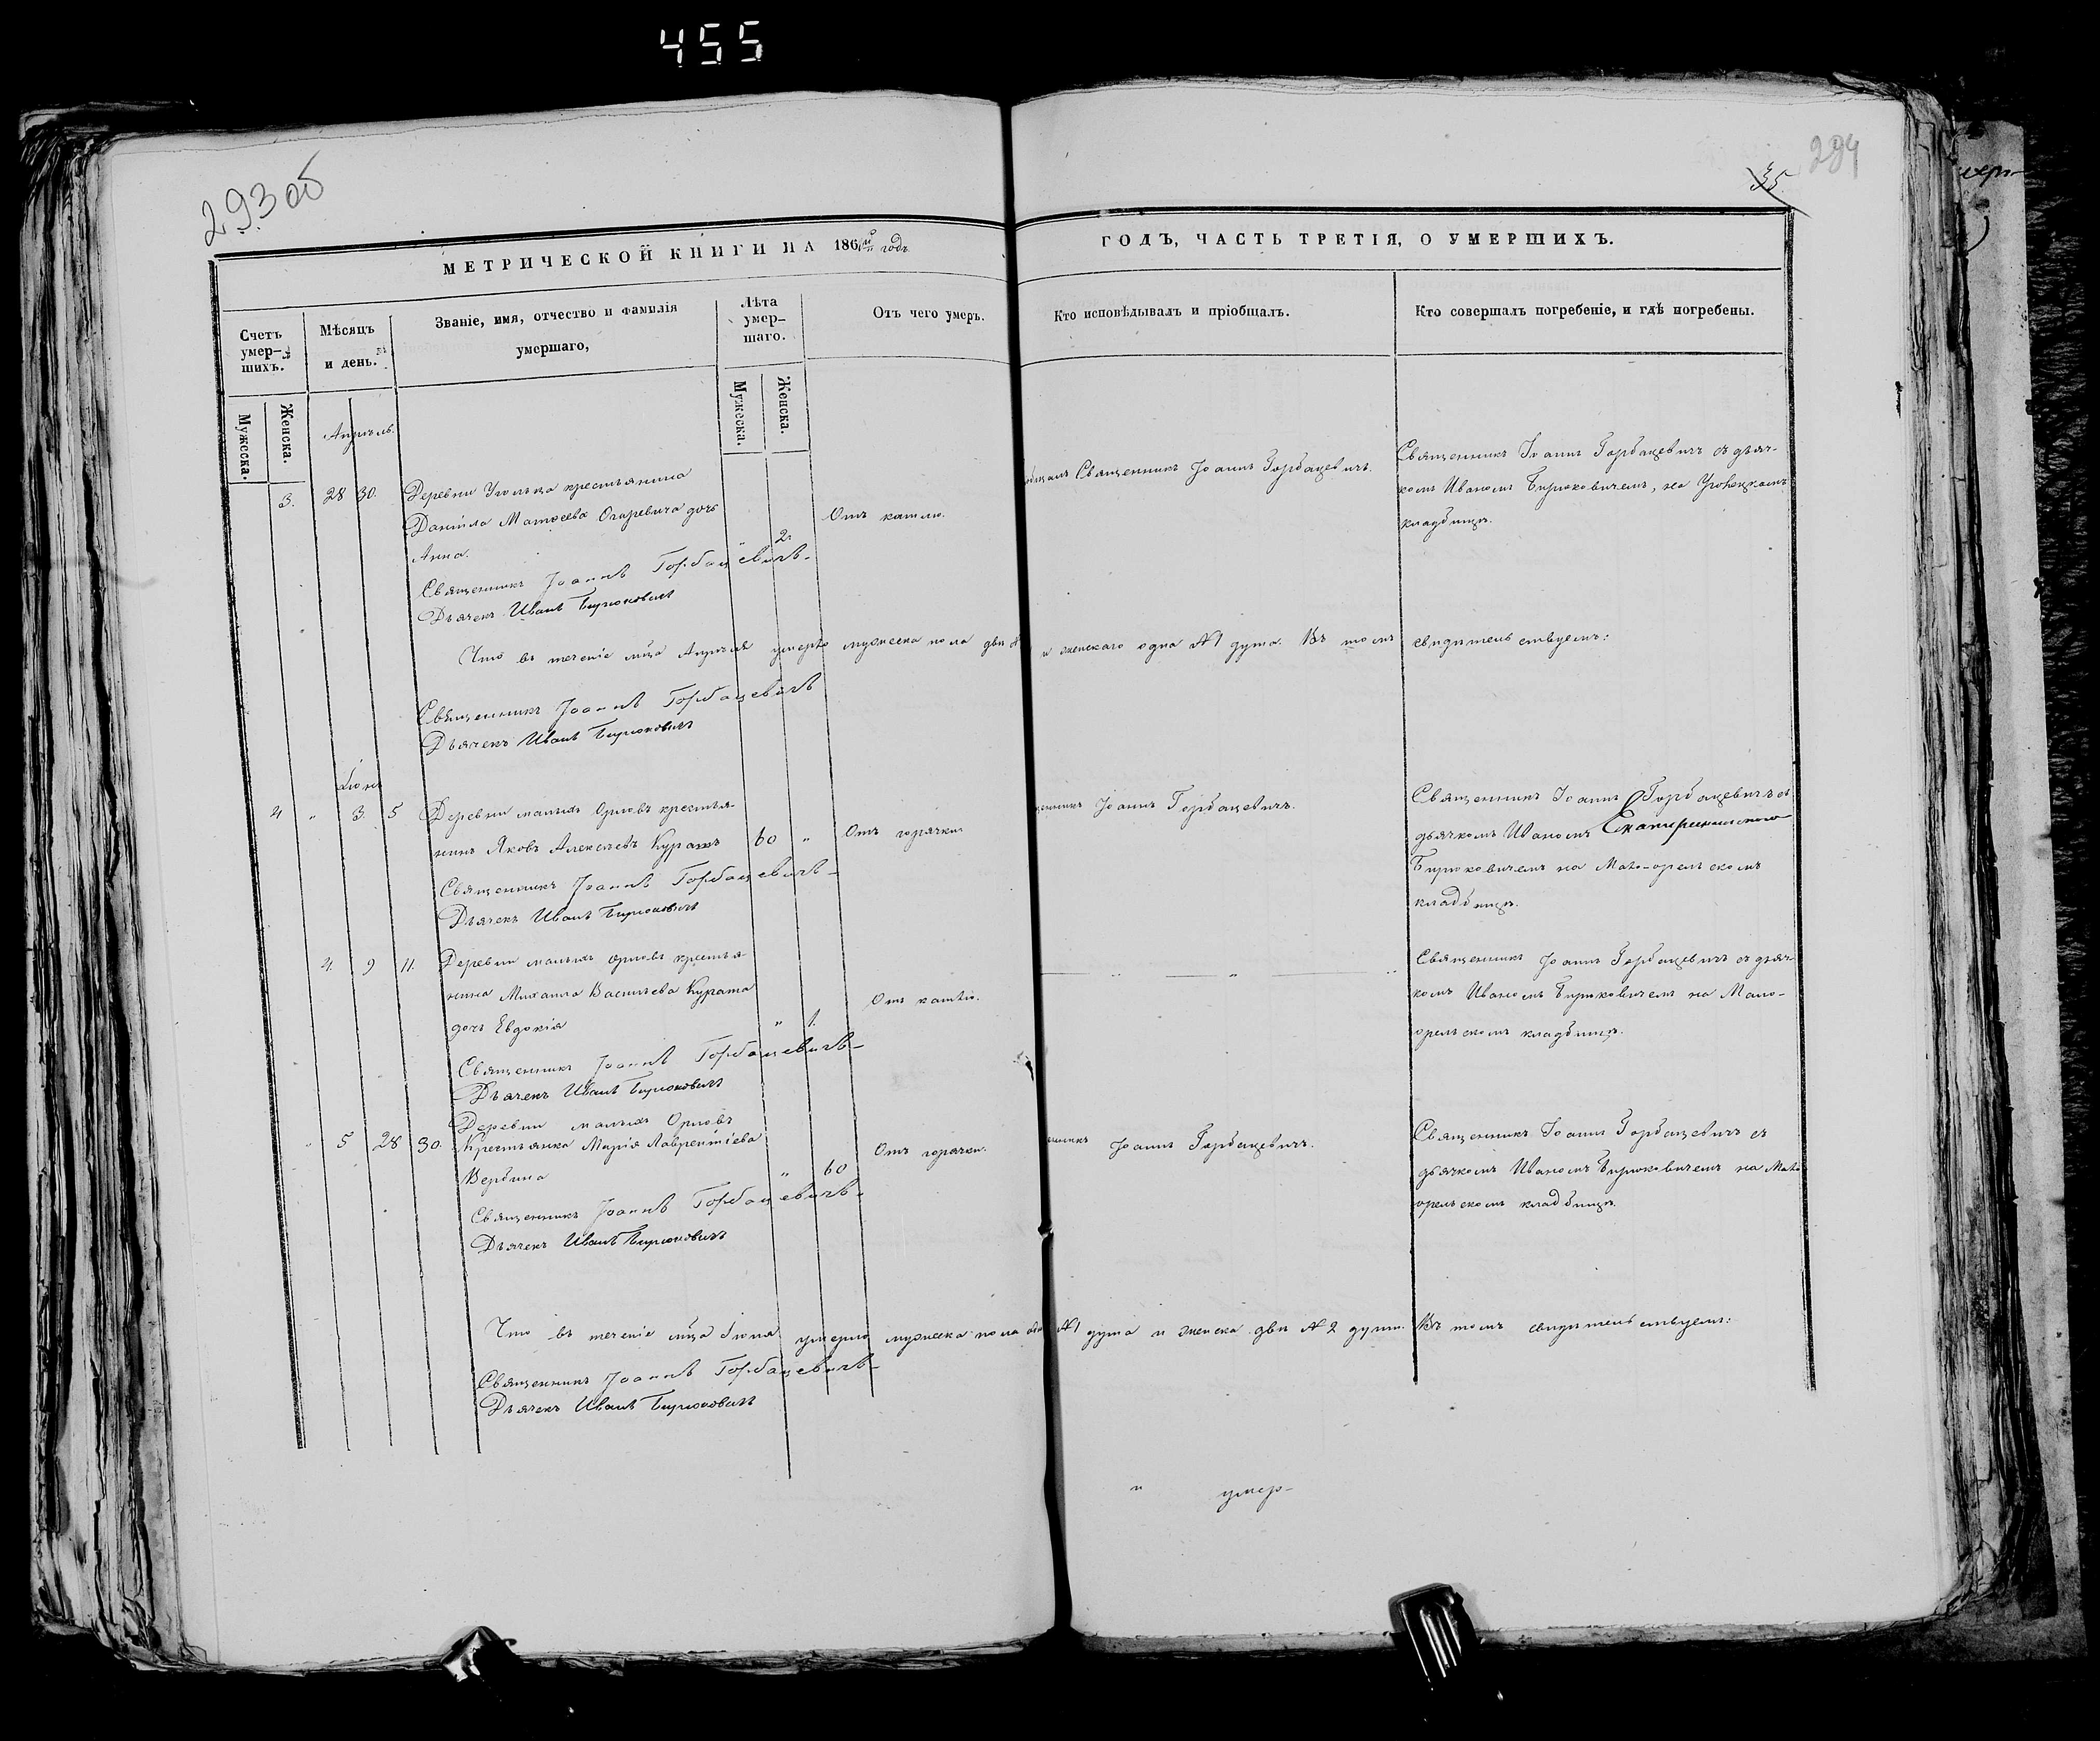 455
293 об
294
35
МЕТРИЧЕСКОЙ КНИГИ НА 186 й годъ
ГОДЪ, ЧАСТЬ ТРЕТІЯ, О УМЕРШИХЪ.
Счетъ умер-шихъ.
Мѣсяцъ и день.
Званіе, имя, отчество и фамилія умершаго,
Лѣта умер-шаго.
Отъ чего умеръ.
Кто исповѣдывалъ и пріобщалъ.
Кто совершалъ погребеніе, и гдѣ погребены.
Мужеска. Женска.
Мужеска. Женска.
Апрѣль.
3. 28 30. Деревни крестьянина
Даніила Матѳеева дочь
Анна. " 2. Отъ кашлю.
Священникъ Іоаннъ Горбацевичъ.
Священникъ Іоаннъ Горбацевичъ съ дьяч-
комъ Иваномъ Бирюковичемъ, на
кладбищѣ.
Священникъ Іоаннъ Горбацевичъ
Дьячекъ Иванъ Бирюковичъ
Что въ теченіе мца Апрѣля умерло мужеска пола двѣ и женскаго одна №1 душа. Въ томъ свидѣтельствуемъ:
Священникъ Іоаннъ Горбацевичъ
Дьячекъ Иванъ Бирюковичъ
Іюнь
4 " 3. 5 Деревни малыхъ Орловъ крестья-
нинъ Яковъ Алексѣевъ Курашъ 60 " Отъ горячки
Іоаннъ Горбацевичъ.
Священникъ Іоаннъ Горбацевичъ съ
дьячкомъ Иваномъ
Бирюковичемъ на Мало-орельскомъ
кладбищѣ.
Священникъ Іоаннъ Горбацевичъ
Дьячекъ Иванъ Бирюковичъ
4. 9 11. Деревни малыхъ орловъ крестья-
нина Михаила Васильева Кураша
дочь Евдокія " 1. Отъ кашлю.
Священникъ Іоаннъ Горбацевичъ съ дьяч-
комъ Иваномъ Бирюковичемъ на Мало-
орельскомъ кладбищѣ.
Священникъ Іоаннъ Горбацевичъ
Дьячекъ Иванъ Бирюковичъ
" 5 28 30. Деревни малыхъ Орловъ
Крестьянка Марія Лаврентіева
Вербина " 60 Отъ горячки.
Іоаннъ Горбацевичъ.
Священникъ Іоаннъ Горбацевичъ съ
дьячкомъ Иваномъ Бирюковичемъ на Мало
орельскомъ кладбищѣ.
Священникъ Іоаннъ Горбацевичъ
Дьячекъ Иванъ Бирюковичъ
Что въ теченіе мца Іюня умерло мужеска пола №1 душа и женска двѣ №2 души. Въ томъ свидѣтельствуемъ:
Священникъ Іоаннъ Горбацевичъ
Дьячекъ Иванъ Бирюковичъ
" умер-